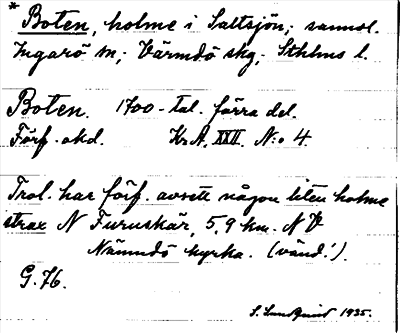 * Boten, holme i Saltsjön; sannol.
Ingarö sn; Värmdö skg; Sthlms l.
Boten. 1700-tal. förra del.
Förf. okd. KrA. XXII. N:o 4.
Trol. har förf. avsett någon liten holme
strax N Furuskär, 5,9 km. NV
Nämndö kyrka. (vänd!).
G.76.
S. Sundquist 1935.